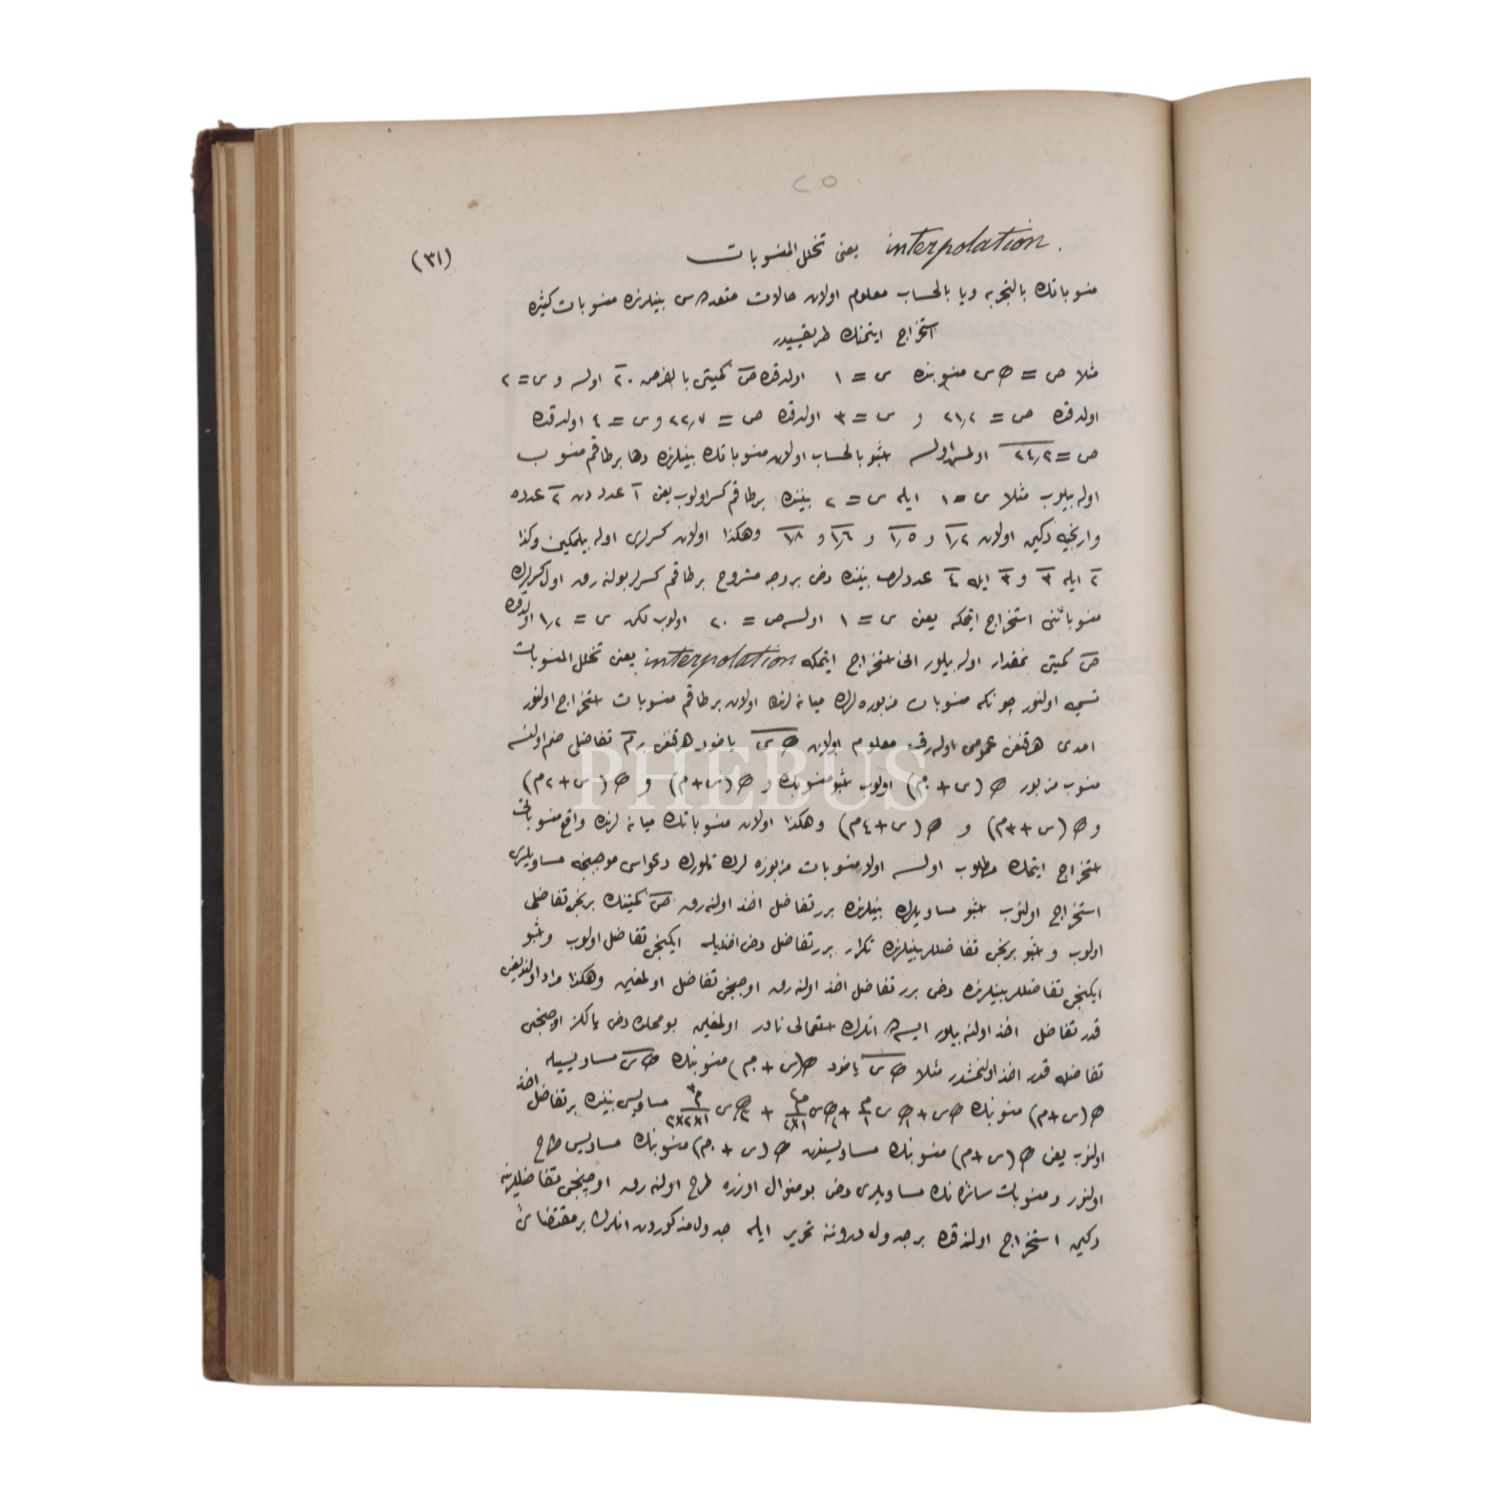 ٢٥٠
interpolation. يعنى تخلل المنسوبات
(٣١)
منسوباتك بالتجربه ويا بالحساب معلوم اولان حالات متعدده‌سى بينلرنده منسوبات كثيره
استخراج ايتمنك طريقيدر
مثلا ص = ى س منسوبنده س = ١ اولدقده ص كميتى بالفرض ٢٠ اولسه و س = ٢
اولدقده ص = ٢١,٢ و س = ٣ اولدقده ص = ٢٢,٧ و س = ٤ اولدقده
ص = ٢٤,٣ اولمش اولسه اشبو بالحساب اولان منسوباتك بينلرنده دها برطاقم منسوب
اوله بيلوب مثلا س = ١ ايله س = ٢ بيننده برطاقم كسر اولوب يعنى ١ عدددن ٢ عدده
وارنجيه دكين اولان ١,٢ و ١,٥ و ١,٦ و ١,٨ وهكذا اولان كسرلرى اوله بيلمكين وكذا
٢ ايله ٣ و ٣ ايله ٤ عددلرى بيننده دخى بر وجه مشروح برطاقم كسرلر بولنه رق اول كسرلرك
منسوباتنى استخراج ايتمكه يعنى س = ١ اولسه ص = ٢٠ اولوب لكن س = ١,٢ اولدقده
ص كميتى نمقدار اوله بيلور انى استخراج ايتمكه interpolation يعنى تخلل المنسوبات
تسميه اولنور چونكه منسوبات مزبوره لرك ميانه لرنده اولان برطاقم منسوبات استخراج اولنور
امدى هرقنغى عمومى اوله رق معلوم اولان س ياخود هرقنغى بر م تفاضلى ضم اولنسه
منسوب مزبور (س + ٠م) اولوب اشبو منسوبك و (س + م) و (س + ٢م)
و (س + ٣م) و (س + ٤م) وهكذا اولان منسوباتك ميانه لرنده واقع منسوباتى
استخراج ايتمك مطلوب اولسه اولا منسوبات مزبوره لرك تيلورك دعواسى موجبنجه مساويلرى
استخراج اولنوب اشبو مساويلرك بينلرنده برر تفاضل اخذ اولنه رق ص كميتنك برنجى تفاضلى
اولوب و اشبو برنجى تفاضللر بينلرنده تكرار برر تفاضل دخى اخذيله ايكنجى تفاضل اولوب و اشبو
ايكنجى تفاضللر بينلرنده دخى برر تفاضل اخذ اولنه رق اوچنجى تفاضل اولمغين وهكذا مراد اولنديغى
قدر تفاضل اخذ اولنه بيلور ايسه ده انلرك استعمالى نادر اولمغين بو محلده دخى يالكز اوچنجى
تفاضله قدر اخذ اولنمشدر مثلا س ياخود (س + ٠م) منسوبنك س مساويسيله
(س + م) منسوبنك مساويسى بيننده بر تفاضل اخذ
اولنوب يعنى (س + م) منسوبنك مساويسندن (س + ٠م) منسوبنك مساويسى طرح
اولنور و منسوبات سائره نك مساويلرى دخى بو منوال اوزره طرح اولنه رق اوچنجى تفاضللرينه
دكين استخراج اولندقده بر جدول دروننه تحرير ايله جدول مذكوردن انلرك بر مقتضاى